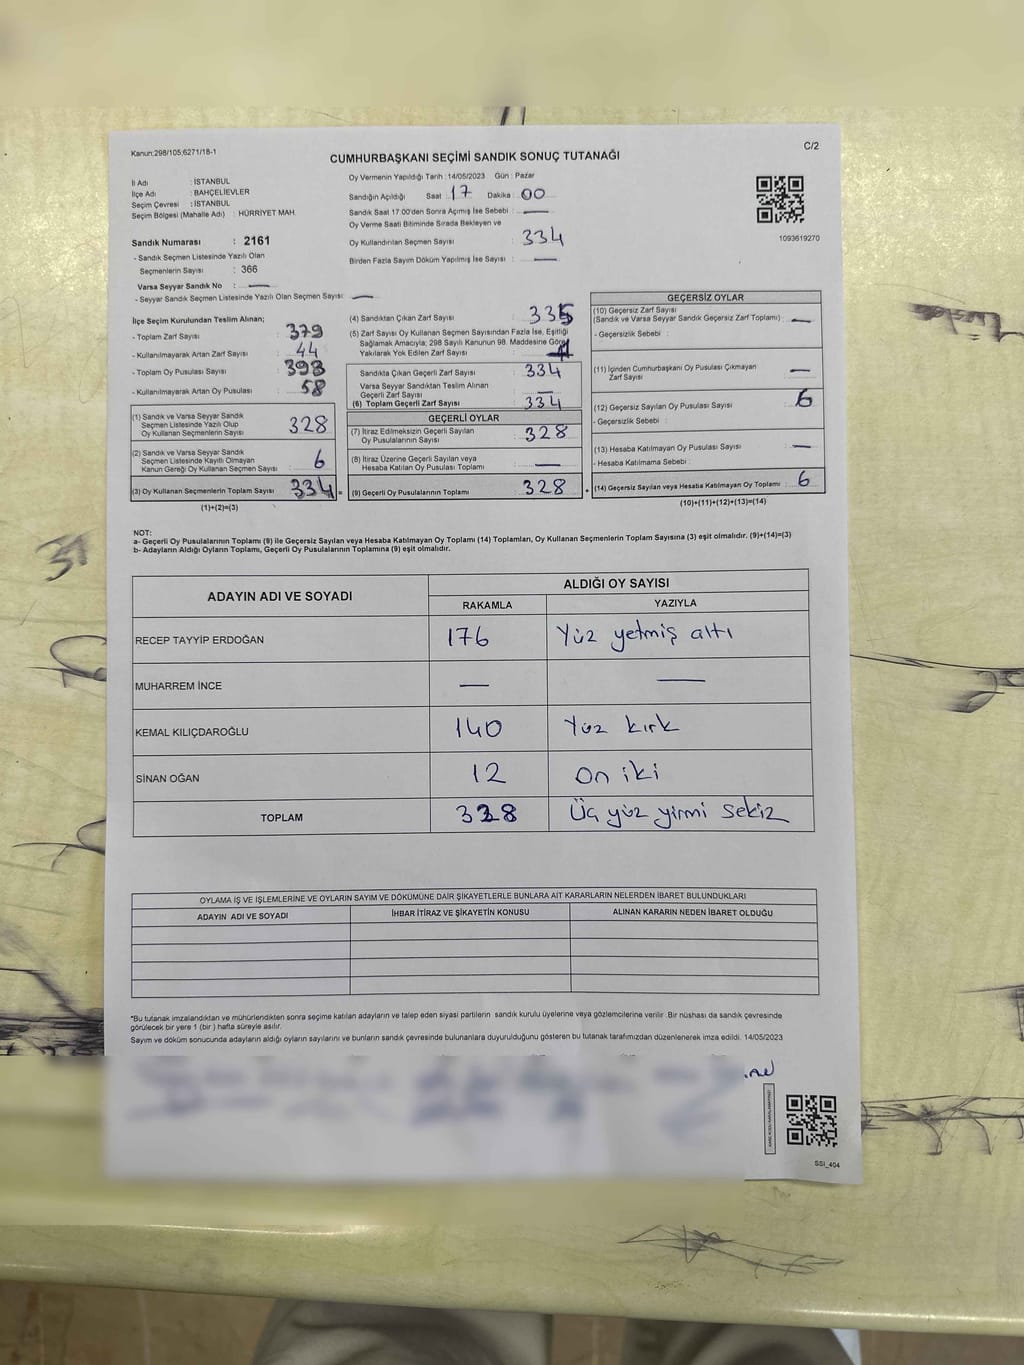 Kanun:298/105;6271/18-1
C/2
CUMHURBAŞKANI SEÇİMİ SANDIK SONUÇ TUTANAĞI
İl Adı : İSTANBUL
İlçe Adı : BAHÇELİEVLER
Seçim Çevresi : İSTANBUL
Seçim Bölgesi (Mahalle Adı) : HÜRRİYET MAH.
Sandık Numarası : 2161
- Sandık Seçmen Listesinde Yazılı Olan
Seçmenlerin Sayısı : 366
Varsa Seyyar Sandık No : —
- Seyyar Sandık Seçmen Listesinde Yazılı Olan Seçmen Sayısı: —
Oy Vermenin Yapıldığı Tarih : 14/05/2023 Gün : Pazar
Sandığın Açıldığı Saat : 17 Dakika : 00
Sandık Saat 17:00'den Sonra Açılmış İse Sebebi : —
Oy Verme Saati Bitiminde Sırada Bekleyen ve
Oy Kullandırılan Seçmen Sayısı : 334
Birden Fazla Sayım Döküm Yapılmış İse Sayısı : —
1093619270
İlçe Seçim Kurulundan Teslim Alınan;
- Toplam Zarf Sayısı : 379
- Kullanılmayarak Artan Zarf Sayısı : 44
- Toplam Oy Pusulası Sayısı : 393
- Kullanılmayarak Artan Oy Pusulası : 58
(1) Sandık ve Varsa Seyyar Sandık
Seçmen Listesinde Yazılı Olup
Oy Kullanan Seçmenlerin Sayısı 328
(2) Sandık ve Varsa Seyyar Sandık
Seçmen Listesinde Kayıtlı Olmayan
Kanun Gereği Oy Kullanan Seçmen Sayısı : 6
(3) Oy Kullanan Seçmenlerin Toplam Sayısı : 334 =
(1)+(2)=(3)
(4) Sandıktan Çıkan Zarf Sayısı : 335
(5) Zarf Sayısı Oy Kullanan Seçmen Sayısından Fazla İse, Eşitliği
Sağlamak Amacıyla; 298 Sayılı Kanunun 98. Maddesine Göre
Yakılarak Yok Edilen Zarf Sayısı :
Sandıkta Çıkan Geçerli Zarf Sayısı : 334
Varsa Seyyar Sandıktan Teslim Alınan
Geçerli Zarf Sayısı : —
(6) Toplam Geçerli Zarf Sayısı : 334
GEÇERLİ OYLAR
(7) İtiraz Edilmeksizin Geçerli Sayılan
Oy Pusulalarının Sayısı : 328
(8) İtiraz Üzerine Geçerli Sayılan veya
Hesaba Katılan Oy Pusulası Toplamı : —
(9) Geçerli Oy Pusulalarının Toplamı : 328 +
GEÇERSİZ OYLAR
(10) Geçersiz Zarf Sayısı
(Sandık ve Varsa Seyyar Sandık Geçersiz Zarf Toplamı) : —
- Geçersizlik Sebebi :
(11) İçinden Cumhurbaşkanı Oy Pusulası Çıkmayan
Zarf Sayısı : —
(12) Geçersiz Sayılan Oy Pusulası Sayısı : 6
- Geçersizlik Sebebi :
(13) Hesaba Katılmayan Oy Pusulası Sayısı : —
- Hesaba Katılmama Sebebi :
(14) Geçersiz Sayılan veya Hesaba Katılmayan Oy Toplamı : 6
(10)+(11)+(12)+(13)=(14)
NOT:
a- Geçerli Oy Pusulalarının Toplamı (9) ile Geçersiz Sayılan veya Hesaba Katılmayan Oy Toplamı (14) Toplamları, Oy Kullanan Seçmenlerin Toplam Sayısına (3) eşit olmalıdır. (9)+(14)=(3)
b- Adayların Aldığı Oyların Toplamı, Geçerli Oy Pusulalarının Toplamına (9) eşit olmalıdır.
ADAYIN ADI VE SOYADI ALDIĞI OY SAYISI
RAKAMLA YAZIYLA
RECEP TAYYİP ERDOĞAN 176 Yüz yetmiş altı
MUHARREM İNCE — —
KEMAL KILIÇDAROĞLU 140 Yüz kırk
SİNAN OĞAN 12 On iki
TOPLAM 328 Üç yüz yirmi sekiz
OYLAMA İŞ VE İŞLEMLERİNE VE OYLARIN SAYIM VE DÖKÜMÜNE DAİR ŞİKAYETLERLE BUNLARA AİT KARARLARIN NELERDEN İBARET BULUNDUKLARI
ADAYIN ADI VE SOYADI İHBAR İTİRAZ VE ŞİKAYETİN KONUSU ALINAN KARARIN NEDEN İBARET OLDUĞU
*Bu tutanak imzalandıktan ve mühürlendikten sonra seçime katılan adayların ve talep eden siyasi partilerin sandık kurulu üyelerine veya gözlemcilerine verilir. Bir nüshası da sandık çevresinde
görülecek bir yere 1 (bir ) hafta süreyle asılır.
Sayım ve döküm sonucunda adayların aldığı oyların sayılarını ve bunların sandık çevresinde bulunanlara duyurulduğunu gösteren bu tutanak tarafımızdan düzenlenerek imza edildi. 14/05/2023
SSI_404